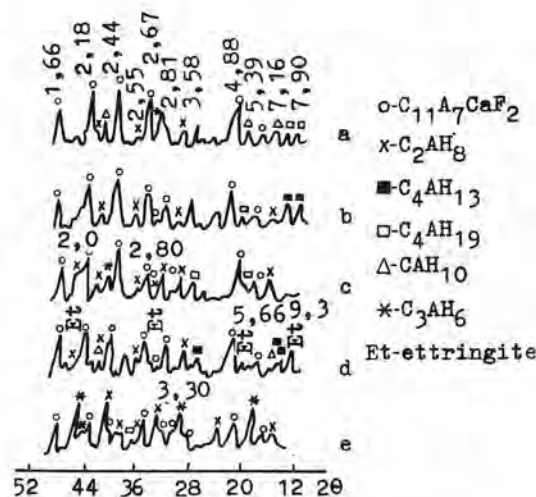 1,66 2,18 2,44 2,55 2,67 2,81 3,58 4,88 5,39 7,16 7,90
a
b
2,0 2,80
c
Et Et 5,66 Et 9,3 Et
d
3,30
e
52 44 36 28 20 12 2θ
o-C₁₁A₇CaF₂
x-C₂AH₈
■-C₄AH₁₃
□-C₄AH₁₉
△-CAH₁₀
*-C₃AH₆
Et-ettringite